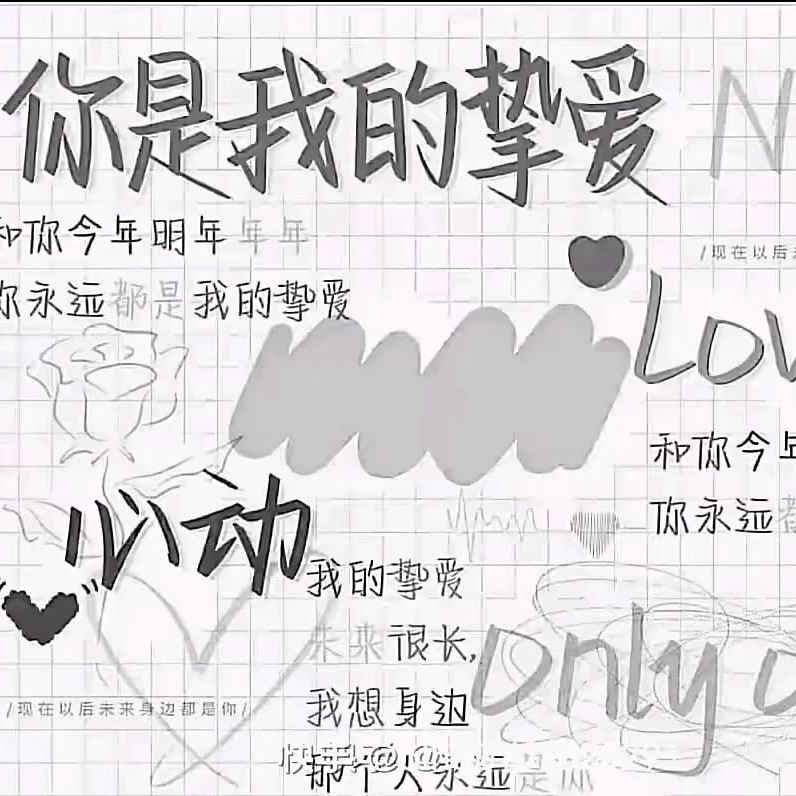 你是我的挚爱 N
和你今年明年年年
/现在以后未
你永远都是我的挚爱
Lov
和你今年
心动
你永远都
我的挚爱
未来很长,
only o
/现在以后未来身边都是你/
我想身边
快手
那个人永远是你